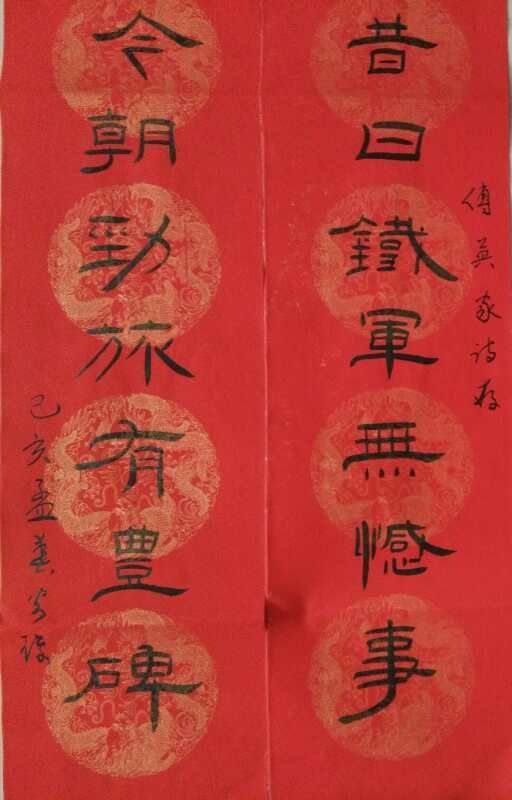 昔日鐵軍無憾事
傅英家詩存
今朝勁旅有豐碑
己亥孟